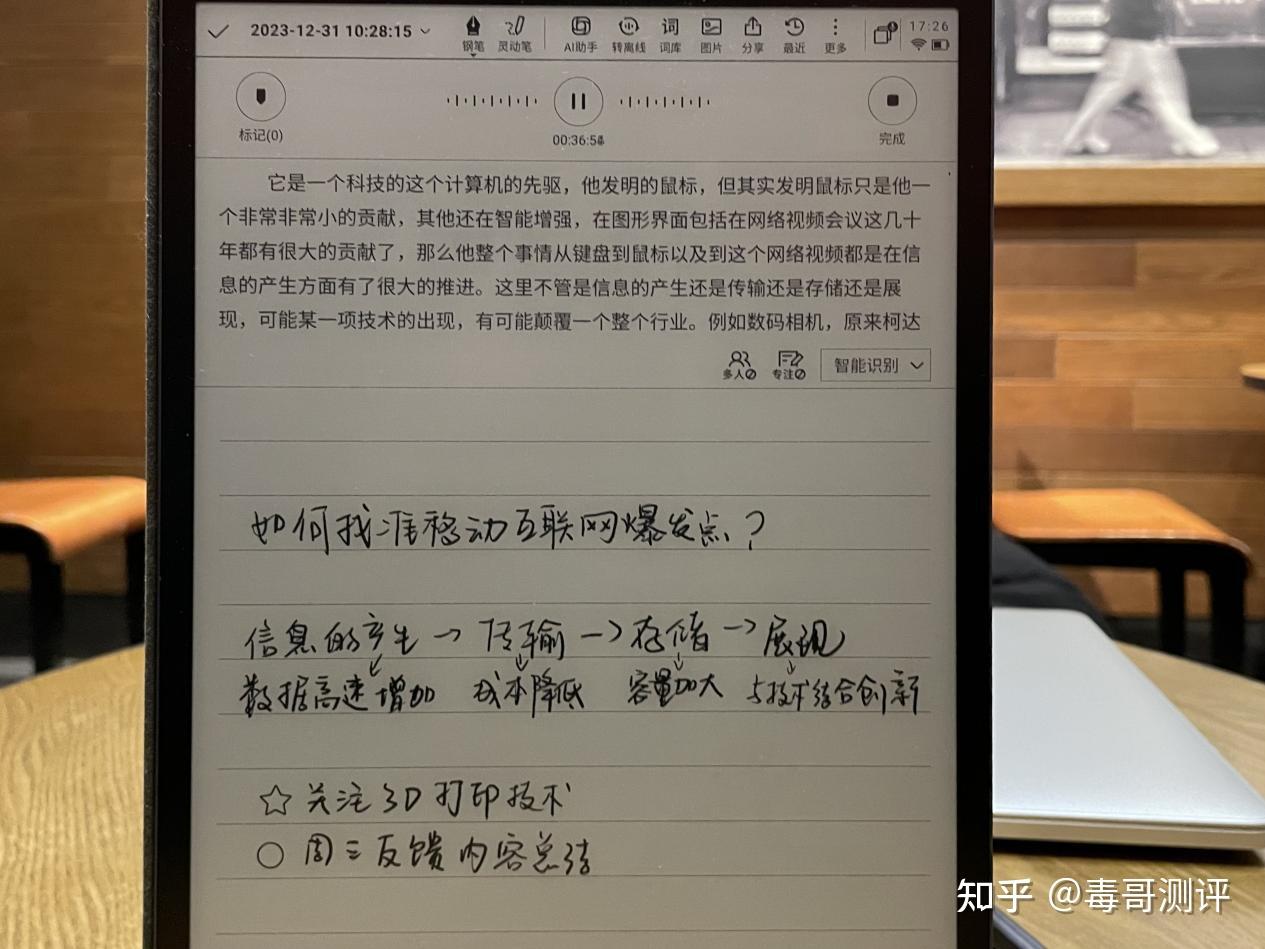 2023-12-31 10:28:15
钢笔 灵动笔 AI助手 转离线 词库 图片 分享 最近 更多 17:26
标记(0) 00:36:54 完成
它是一个科技的这个计算机的先驱，他发明的鼠标，但其实发明鼠标只是他一
个非常非常小的贡献，其他还在智能增强，在图形界面包括在网络视频会议这几十
年都有很大的贡献了，那么他整个事情从键盘到鼠标以及到这个网络视频都是在信
息的产生方面有了很大的推进。这里不管是信息的产生还是传输还是存储还是展
现，可能某一项技术的出现，有可能颠覆一个整个行业。例如数码相机，原来柯达
多人 专注 智能识别
如何找准移动互联网爆发点？
信息的产生→传输→存储→展现
数据高速增加 成本降低 容量加大 与技术结合创新
☆ 关注3D打印技术
○ 周三反馈内容总结
知乎 @毒哥测评